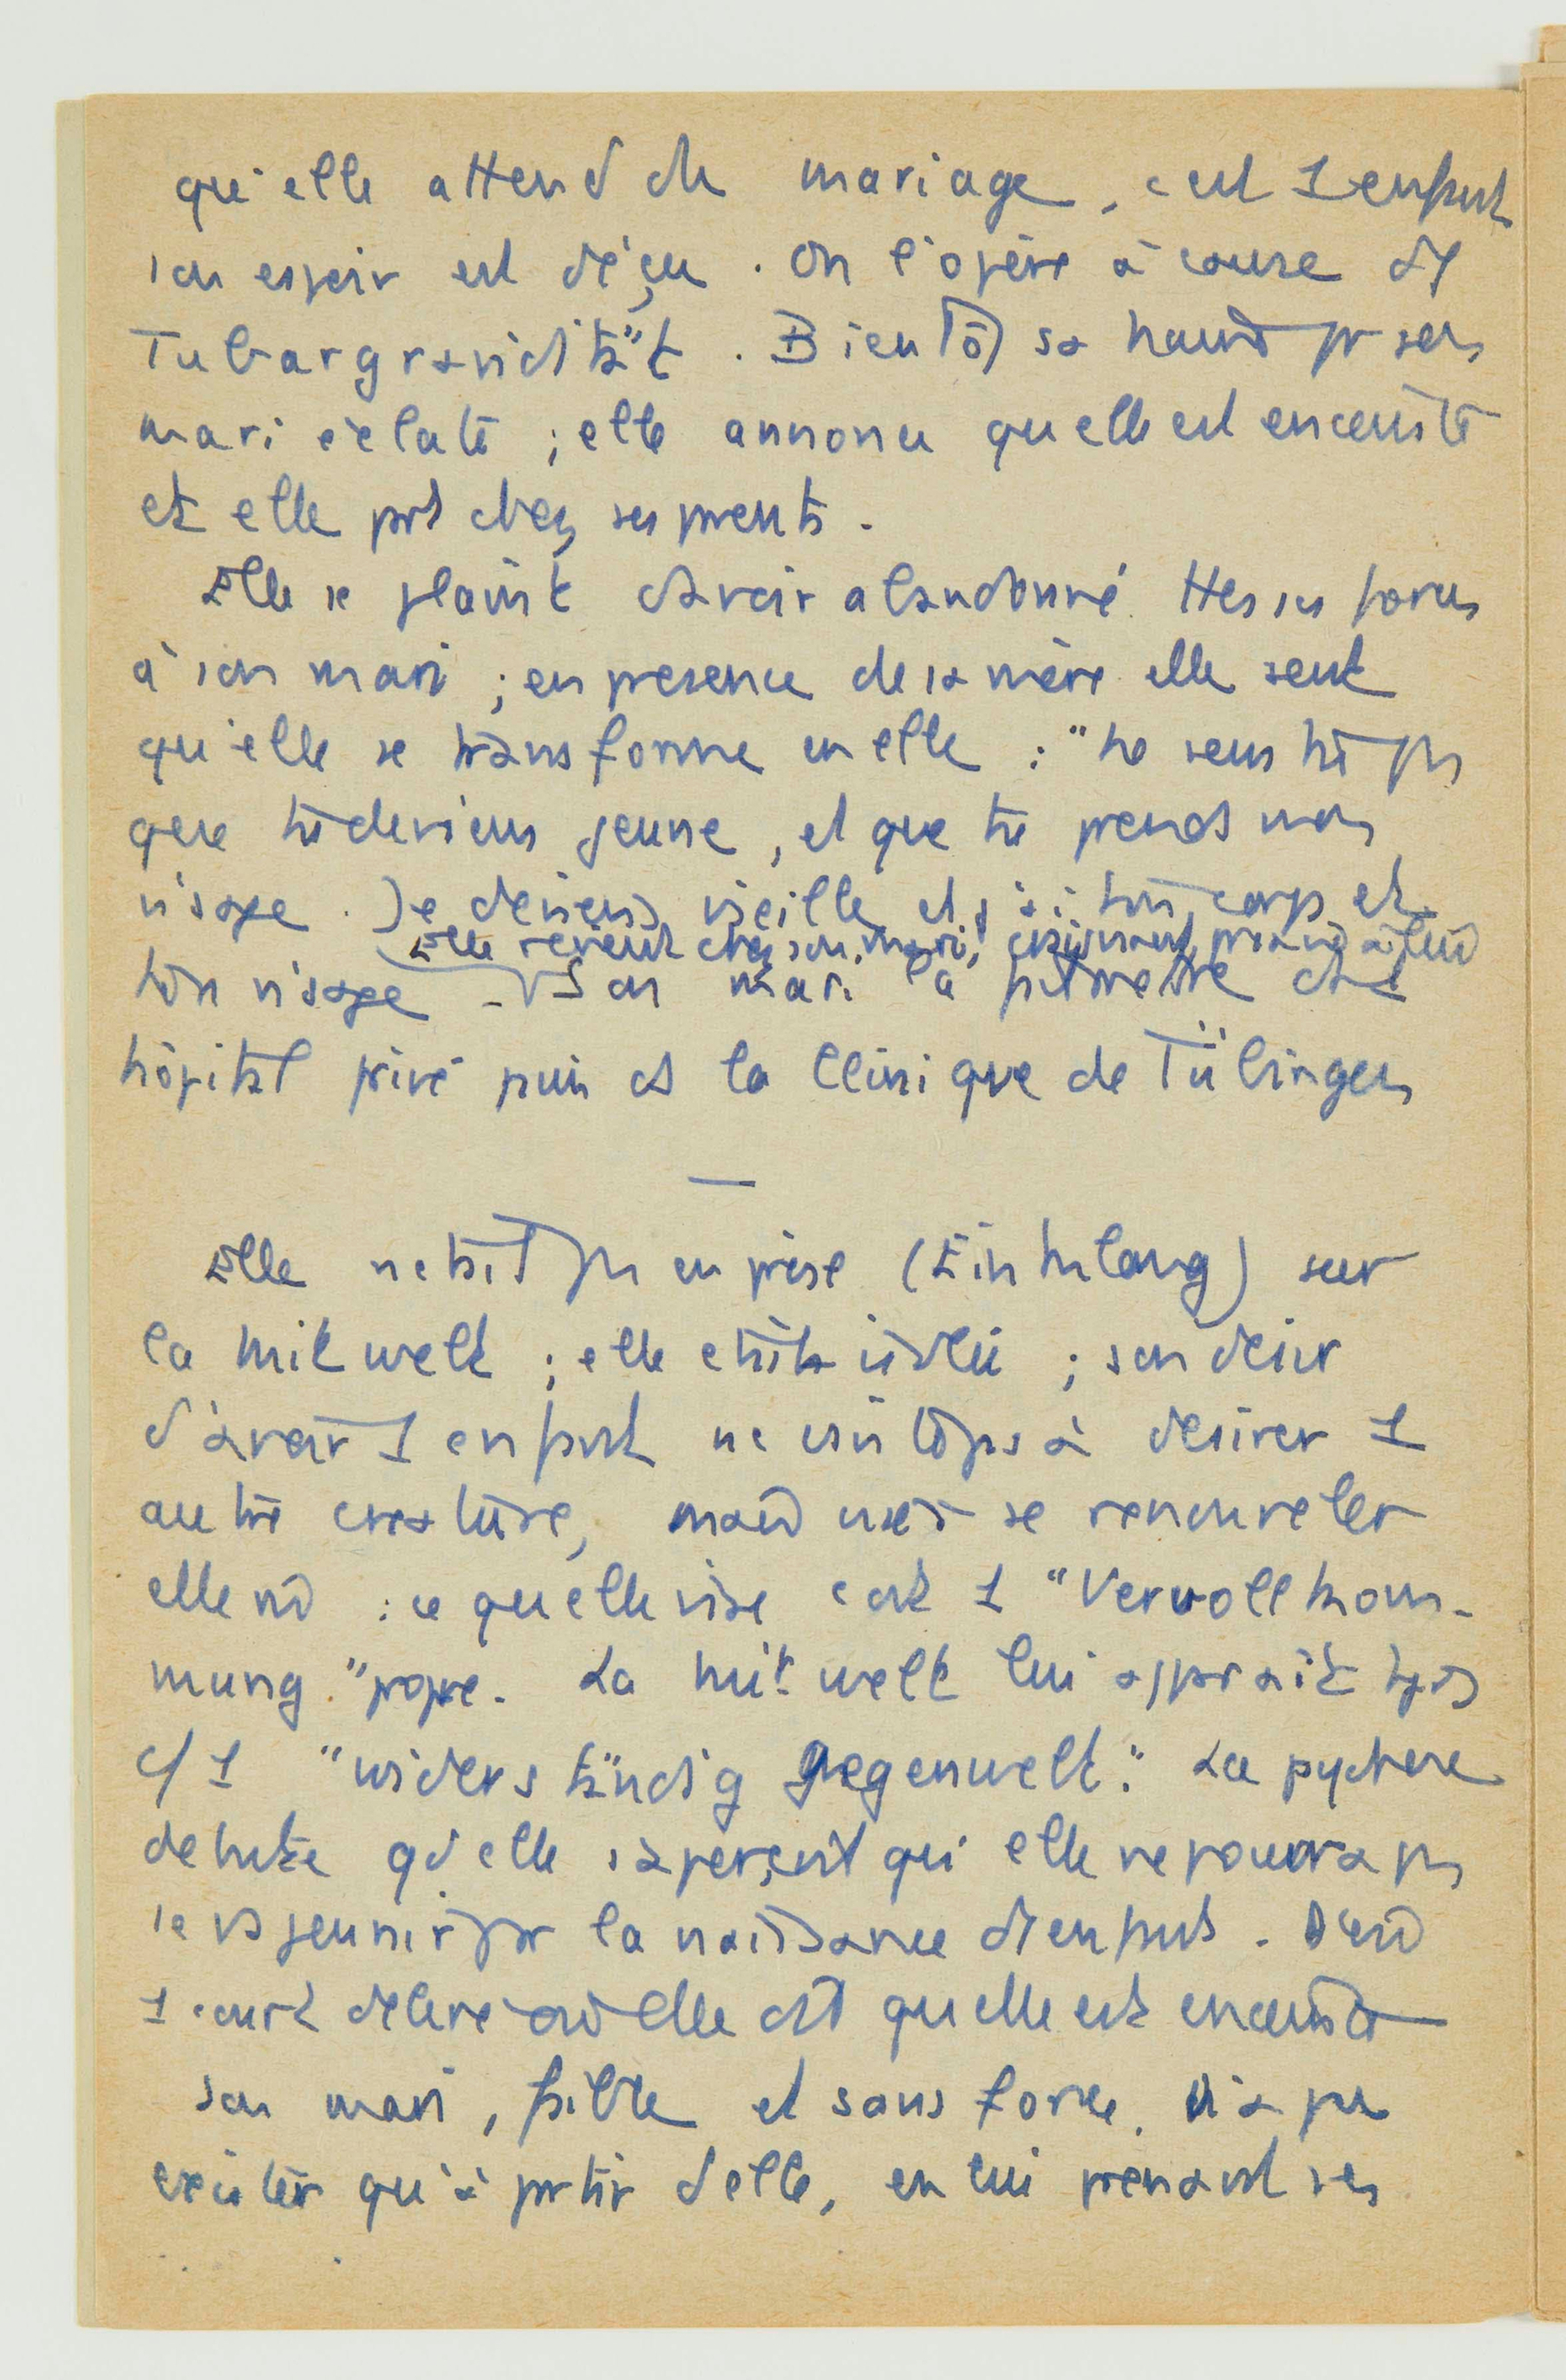 qu'elle attend du mariage, c'est 1 enfant
son espoir est déçu. On l'opère à cause de
Tubargravidität. Bientôt sa haine pr son
mari éclate ; elle annonce qu'elle est enceinte
et elle part chez ses parents.
Elle se plaint d'avoir abandonné ttes ses forces
à son mari ; en présence de sa mère elle sent
qu'elle se transforme en elle : "ne sens tu pas
que tu deviens jeune, et que tu prends mon
visage. Je deviens vieille et j'ai ton corps et
Elle revient chez son mari,
ton visage. Son mari la fait mettre ds 1
hôpital privé puis ds la Clinique de Tübingen
—
Elle n'était pas en prise (Einklang) sur
la Mitwelt ; elle était isolée ; son désir
d'avoir 1 enfant ne visait pas à désirer 1
autre créature, mais visait à se renouveler
elle m̂ : ce qu'elle vise c'est 1 "Vervollkom-
mnung" propre. La Mitwelt lui apparaît tjrs
c/ 1 "widerständig Gegenwelt". La psychose
débute qd elle s'aperçoit qu'elle ne pourra pas
se rajeunir par la naissance d'1 enfant. D'où
1 court délire où elle dit qu'elle est enceinte
son mari, faible et sans force, n'a pu
exister qu'à partir d'elle, en lui prenant ses